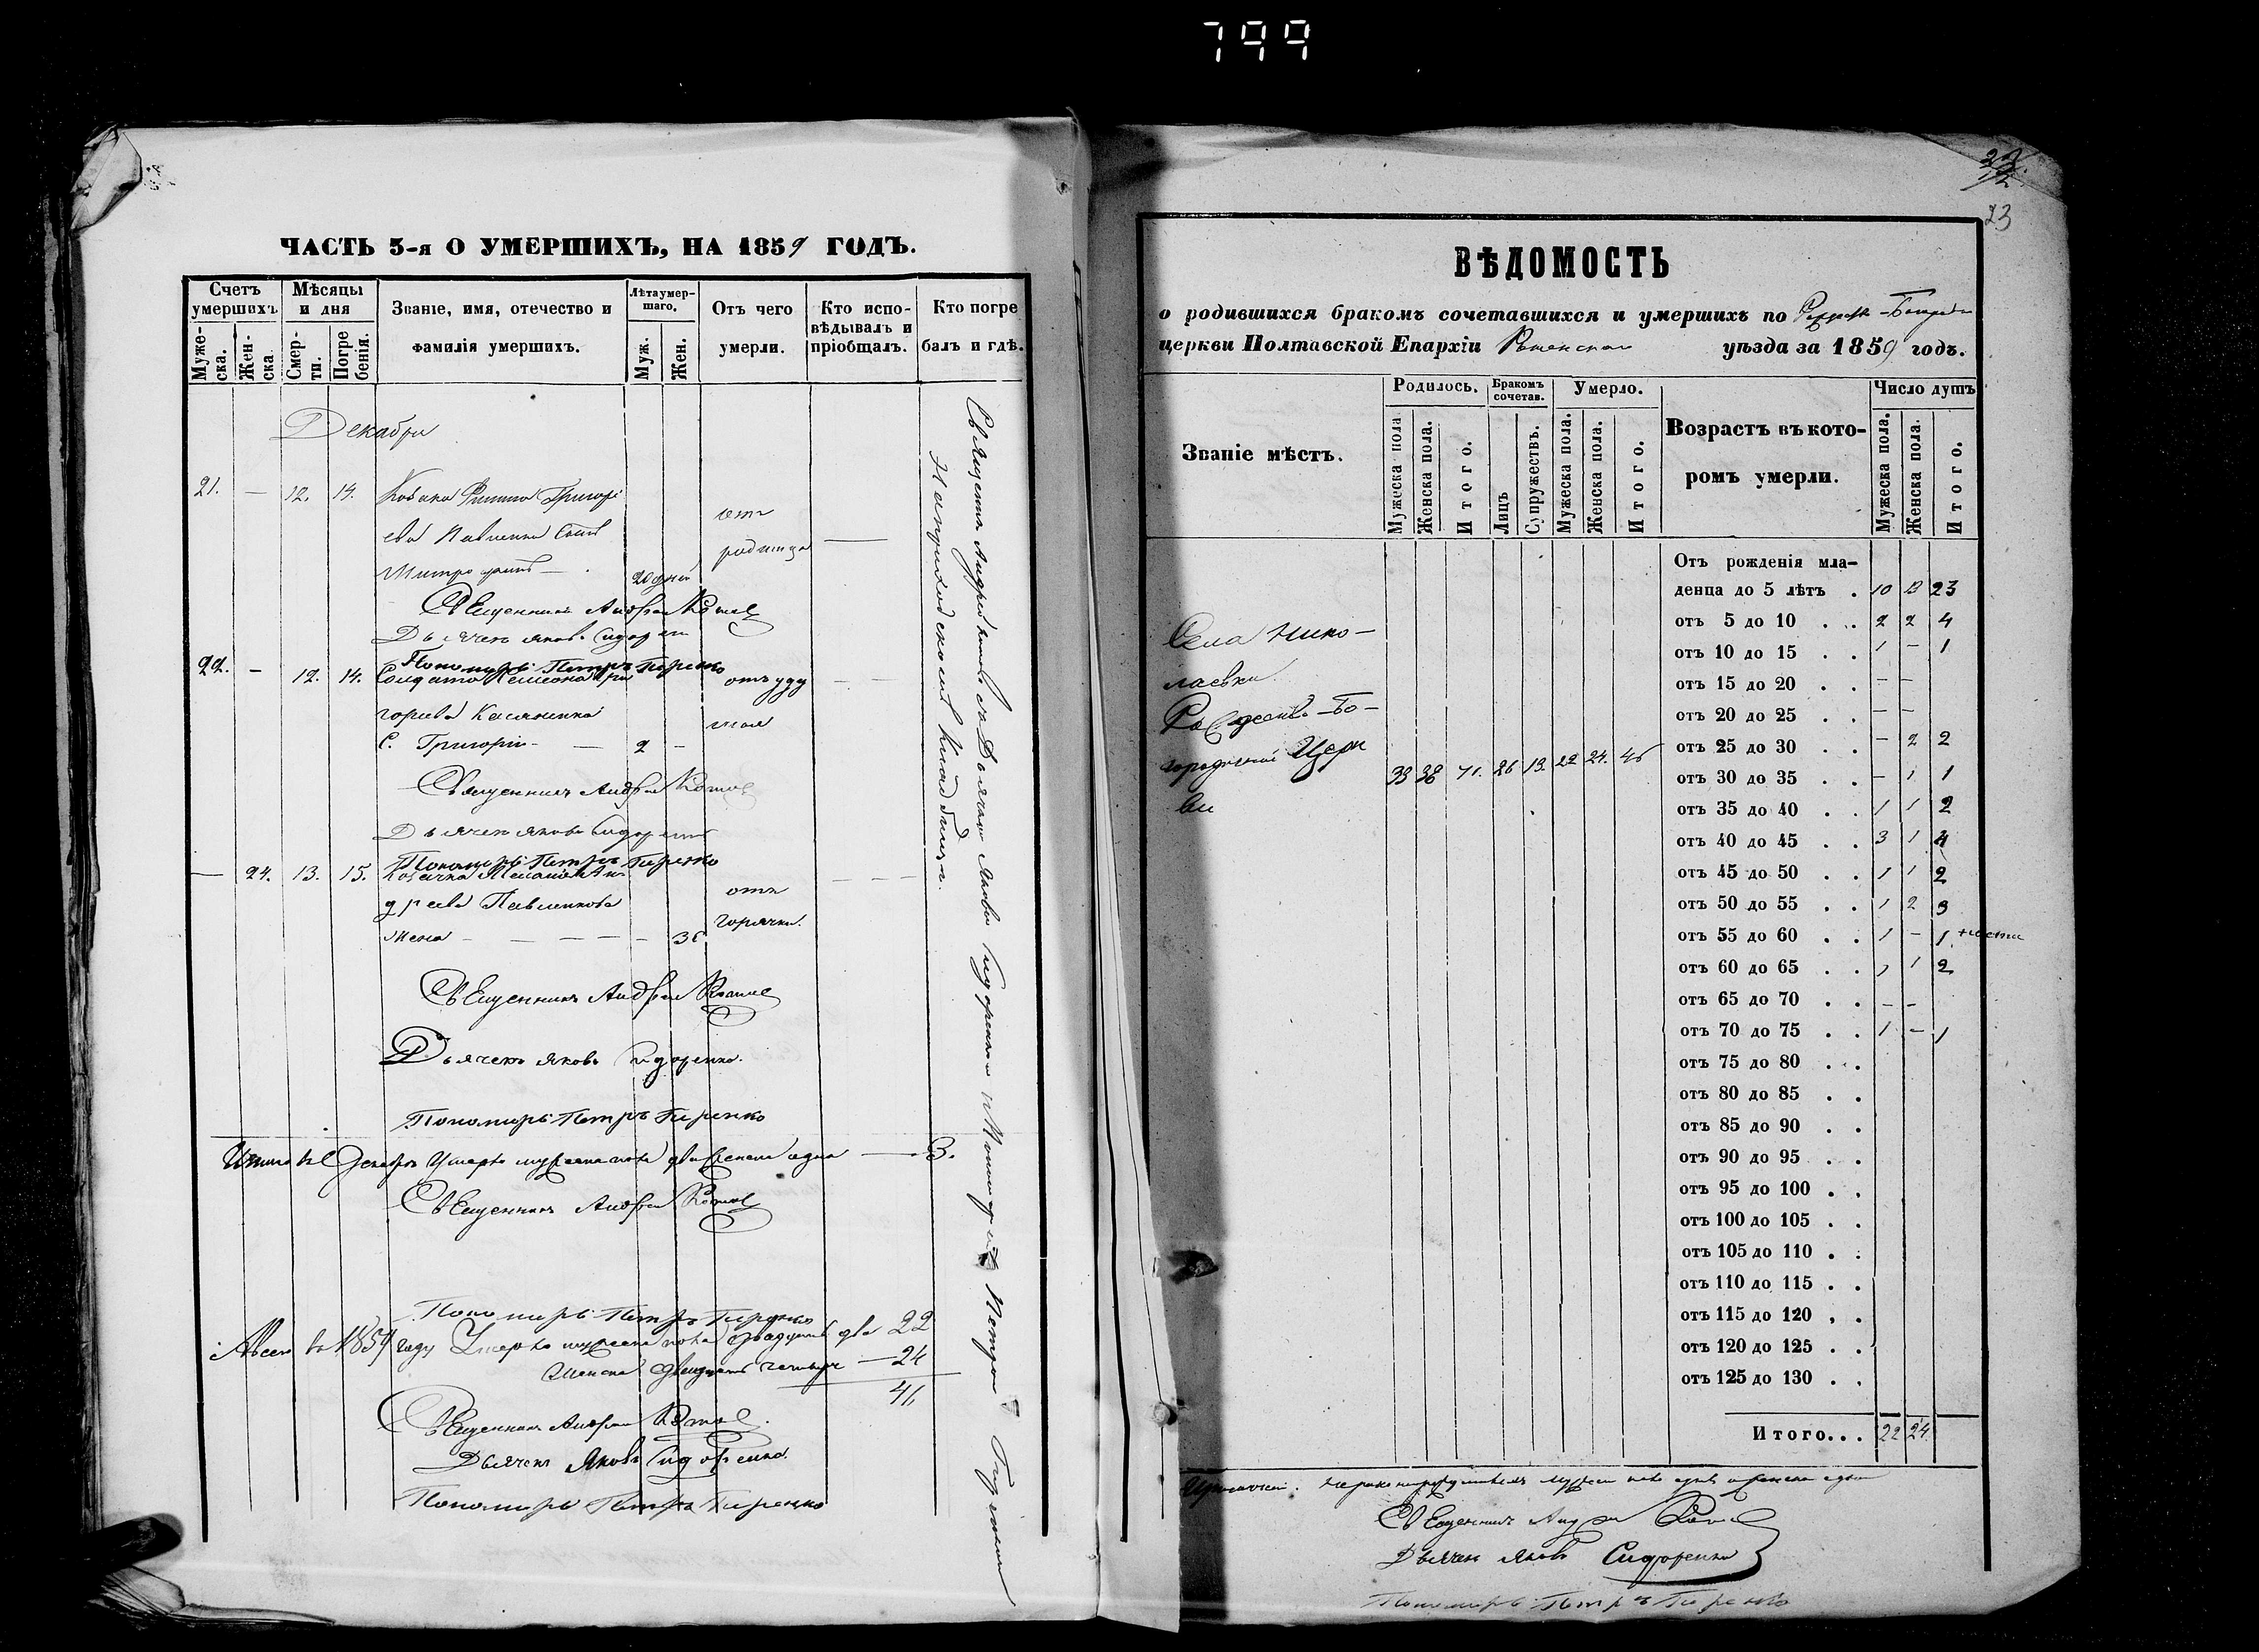 799
ЧАСТЬ 3-я О УМЕРШИХЪ, НА 1859 ГОДЪ.
Счетъ умершихъ
Муже-ска.
Жен-ска
Мѣсяцы и дня
Смер-ти.
Погре бенія.
Званіе, имя, отечество и
фамилія умершихъ.
Лѣта умер-шаго.
Муж.
Жен.
Отъ чего
умерли.
Кто испо-
вѣдывалъ и
пріобщалъ.
Кто погре
балъ и гдѣ.
Декабрь
21. — 12. 14. Козака Григорі
ева Павленка сынъ
отъ
родимца
Митрофанъ — 20 дней
Священникъ Андрей
Дьячекъ Яковъ Сидоренко
Пономарь Петръ
22. — 12. 14. Солдата
горіева
С. Григорій — 2 —
Священникъ Андрей
Дьячекъ Яковъ Сидоренко
Пономарь Петръ
— 24. 13. 15. Козачка
Павленкова
отъ
горячки.
жена — 36
Священникъ Андрей
Дьячекъ Яковъ Сидоренко.
Пономарь Петръ
Итого въ Декабрѣ умерло мужеска пола два женска одна — 3.
Священникъ Андрей
Пономарь Петръ
А всего въ 1859 году умерло мужеска пола двадцать два 22
женска двадцать четыре — 24
Священникъ Андрей
Дьячекъ Яковъ Сидоренко.
Пономарь Петръ
Священникъ Андрей съ Дьячкомъ Яковомъ Сидоренкомъ и Пономаремъ Петромъ
На приходскомъ кладбищѣ.
23
ВѢДОМОСТЬ
о родившихся бракомъ сочетавшихся и умершихъ по
церкви Полтавской Епархіи Роменскаго уѣзда за 1859 годъ.
Званіе мѣстъ.
Родилось.
Мужеска пола
Женска пола.
Итого.
Бракомъ сочетав.
Лицъ
Супружествъ.
Умерло.
Мужеска пола.
Женска пола.
Итого.
Возрастъ въ кото-
ромъ умерли.
Число душъ
Мужеска пола.
Женска пола.
Итого.
Села Нико-
лаевки
Рождество-Бо-
городичной Церк
ви
33 38 71. 26 13. 22 24. 46
Отъ рожденія мла-
денца до 5 лѣтъ . 10 13 23
отъ 5 до 10 . . 2 2 4
отъ 10 до 15 . . 1 — 1
отъ 15 до 20 . . — —
отъ 20 до 25 . . — —
отъ 25 до 30 . . — 2 2
отъ 30 до 35 . . — 1 1
отъ 35 до 40 . . 1 1 2
отъ 40 до 45 . . 3 1 4
отъ 45 до 50 . . 1 1 2
отъ 50 до 55 . . 1 2 3
отъ 55 до 60 . . 1 — 1
отъ 60 до 65 . . 1 1 2
отъ 65 до 70 . . — —
отъ 70 до 75 . . 1 — 1
отъ 75 до 80 . .
отъ 80 до 85 . .
отъ 85 до 90 . .
отъ 90 до 95 . .
отъ 95 до 100 . .
отъ 100 до 105 . .
отъ 105 до 110 . .
отъ 110 до 115 . .
отъ 115 до 120 . .
отъ 120 до 125 . .
отъ 125 до 130 . .
Итого... 22 24
Священникъ Андрей
Дьячекъ Яковъ Сидоренко
Пономарь Петръ